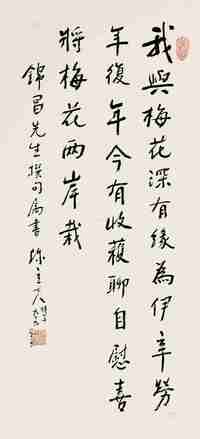 我與梅花深有緣為伊辛勞
年復年今有收穫聊自慰喜
將梅花兩岸栽
錦昌先生撰句屬書